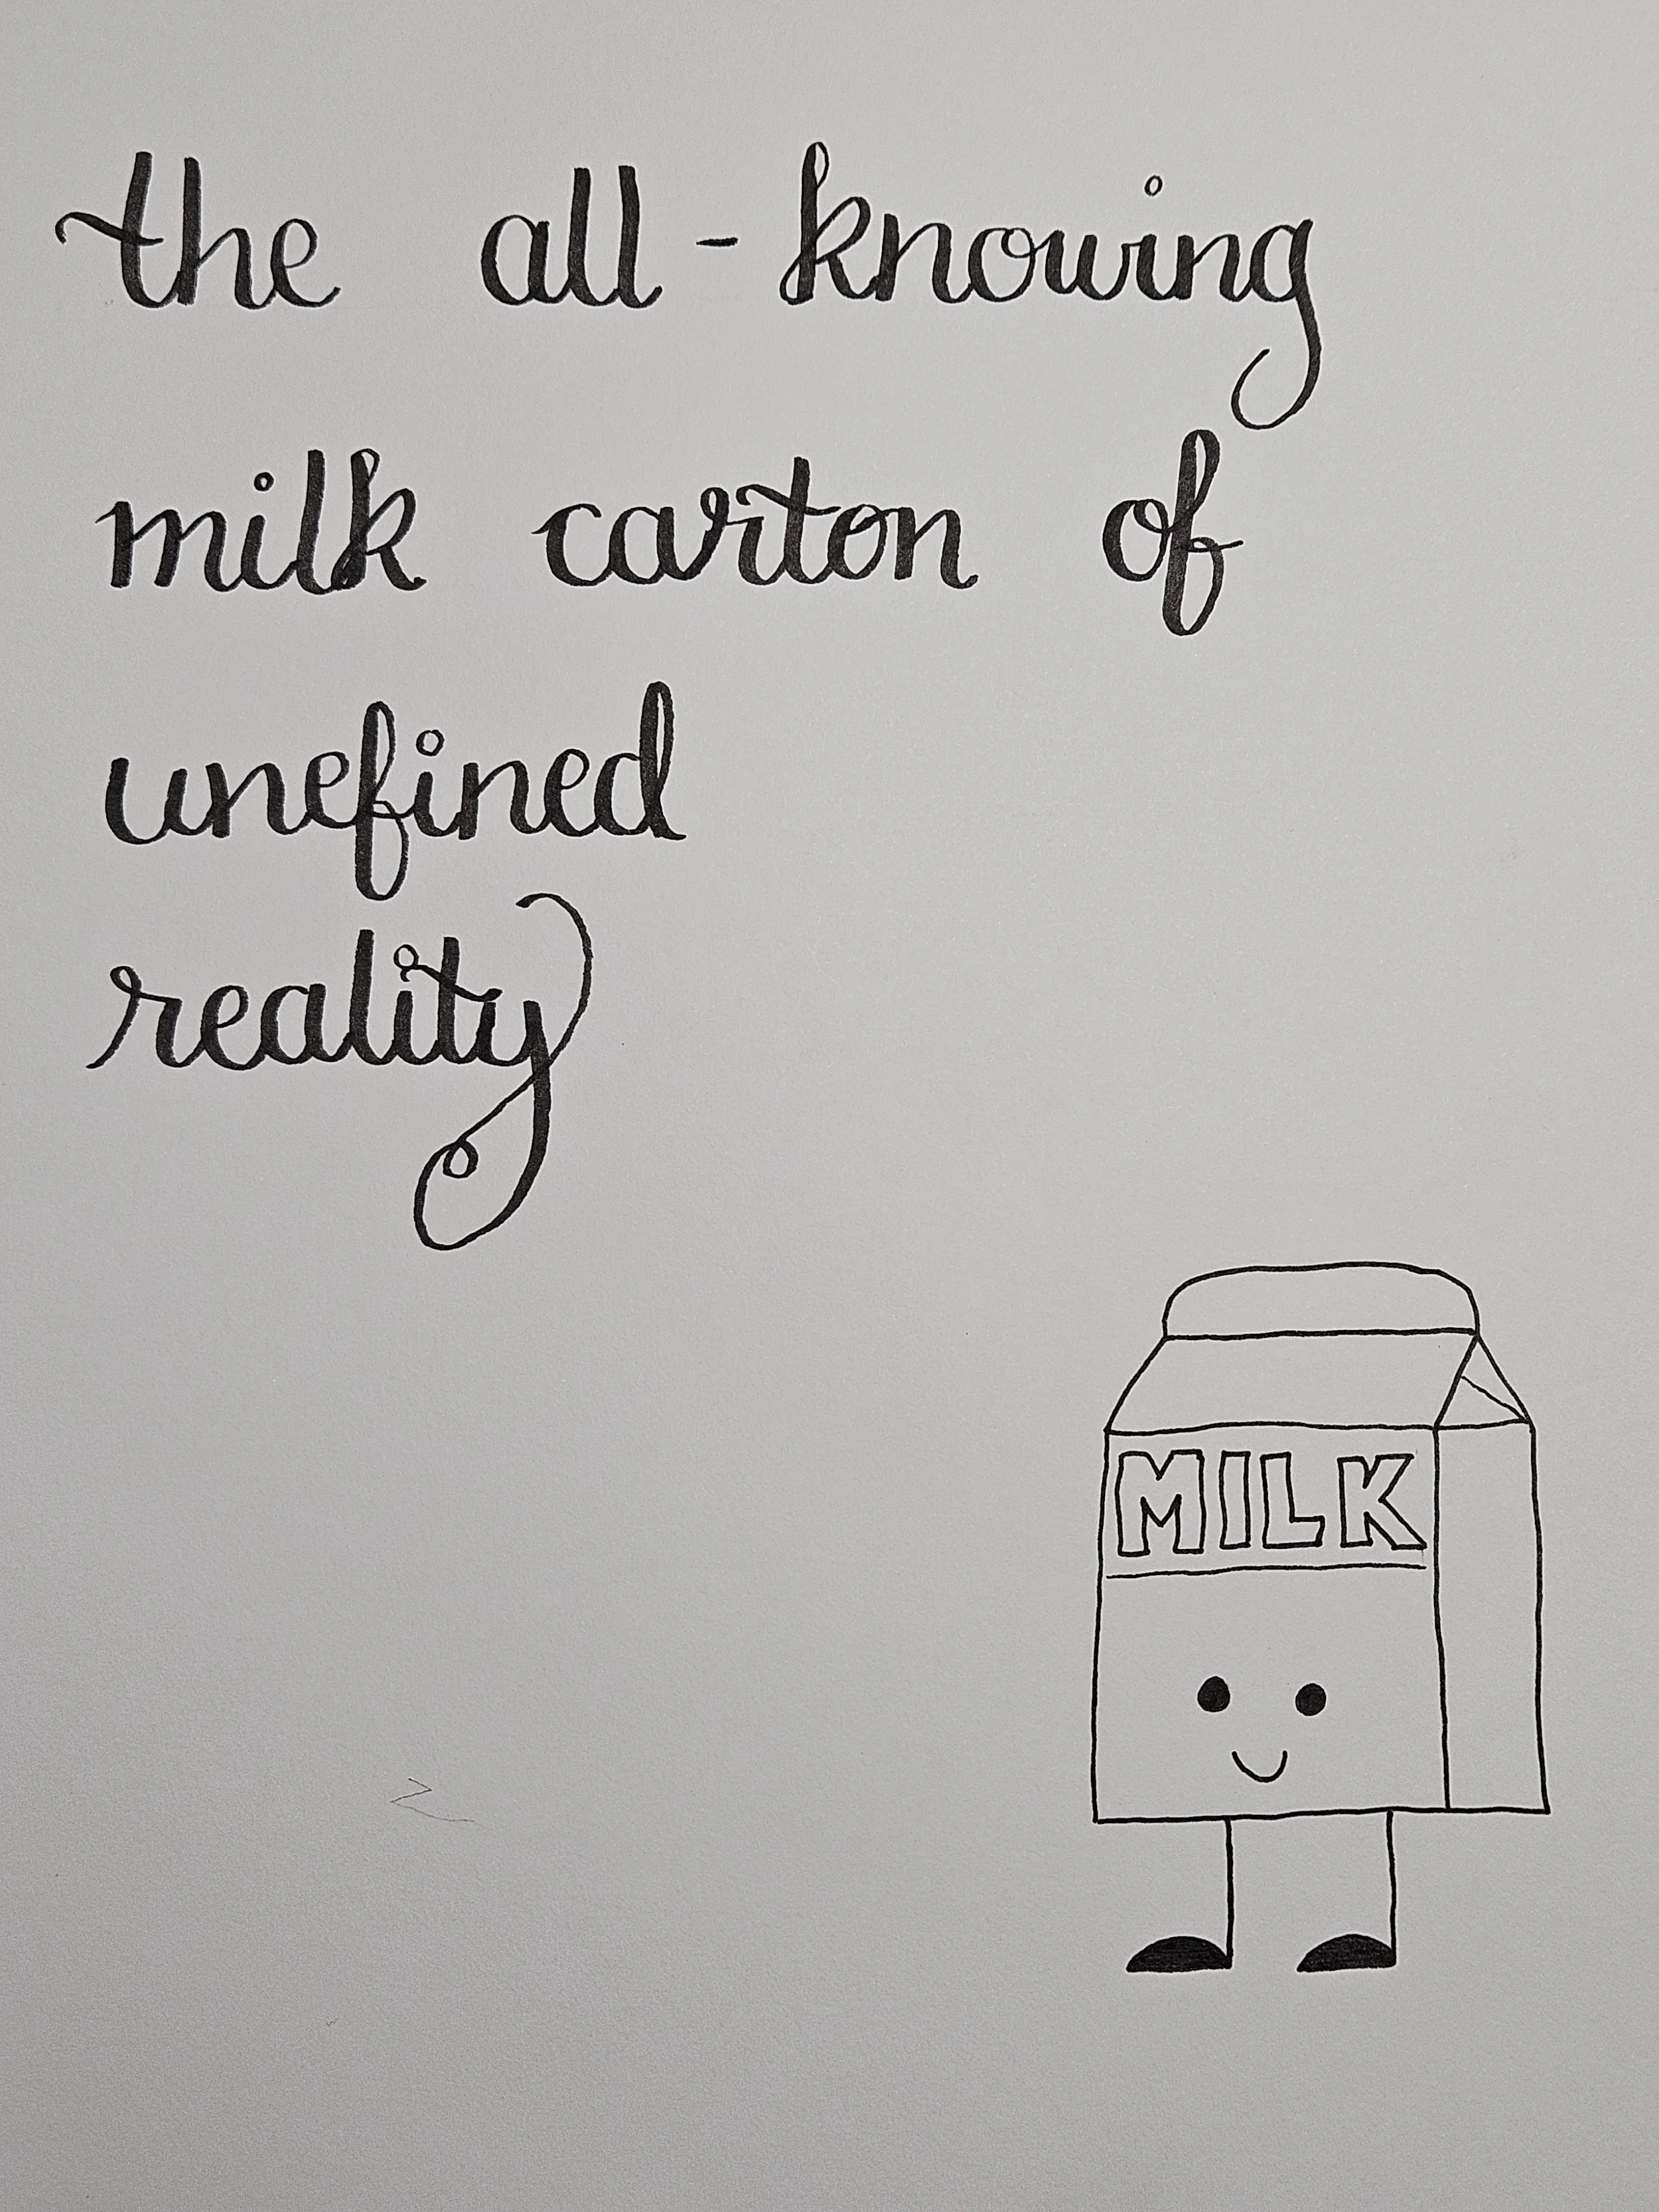 the all-knowing
milk carton of
unefined
reality
MILK